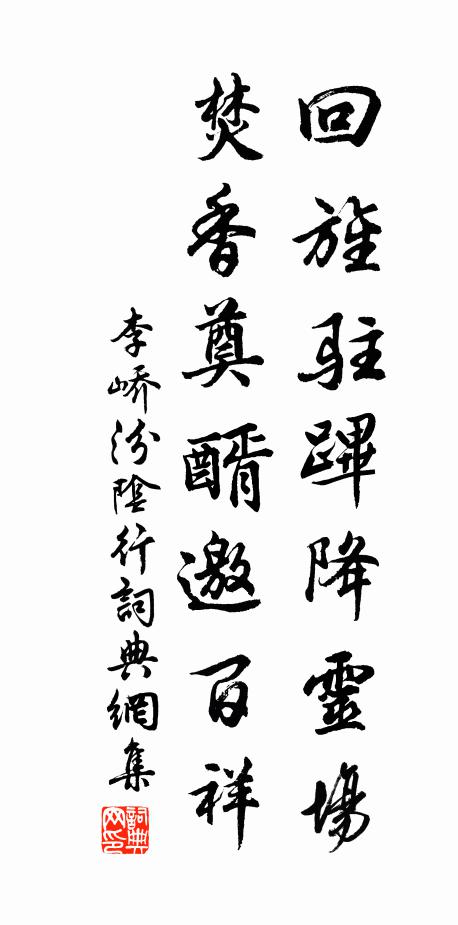 回旌駐蹕降靈場
焚香奠醑邀百祥
李嶠汾陰行詞典網集
詞典网印